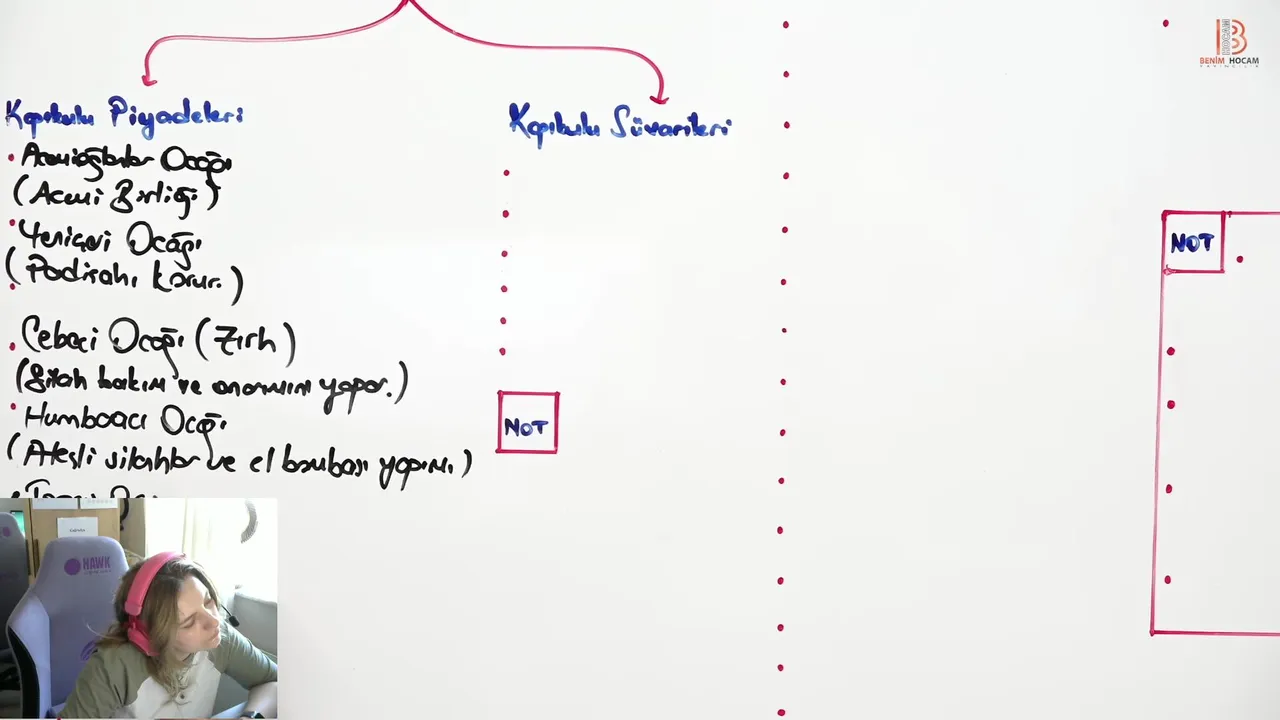 BENİM HOCAM
YAYINCILIK
Kapıkulu Piyadeleri
Kapıkulu Süvarileri
• Acemioğlanlar Ocağı
(Acemi Birliği)
• Yeniçeri Ocağı
(Padişahı korur.)
• Cebeci Ocağı (Zırh)
(Silah bakım ve onarımını yapar.)
• Humbaracı Ocağı
(Ateşli silahlar ve el bombası yapımı.)
NOT
NOT
NAWK